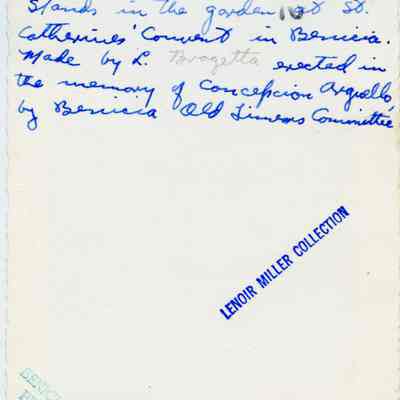 stands in the garden at St.
Catherines' Convent in Benicia.
Made by L. Bragetta erected in
the memory of Concepcion Argiello,
by Benicia Old Timers Committee
LENOIR MILLER COLLECTION